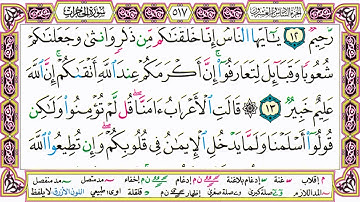 سورة الحجرات ٥١٧ الجزء السادس والعشرون
رَّحِيمٌ ١٢ يَٰٓأَيُّهَا ٱلنَّاسُ إِنَّا خَلَقْنَٰكُم مِّن ذَكَرٍ وَأُنثَىٰ وَجَعَلْنَٰكُمْ
شُعُوبًا وَقَبَآئِلَ لِتَعَارَفُوٓا۟ إِنَّ أَكْرَمَكُمْ عِندَ ٱللَّهِ أَتْقَىٰكُمْ إِنَّ ٱللَّهَ
عَلِيمٌ خَبِيرٌ ١٣ قَالَتِ ٱلْأَعْرَابُ ءَامَنَّا قُل لَّمْ تُؤْمِنُوا۟ وَلَٰكِن
قُولُوٓا۟ أَسْلَمْنَا وَلَمَّا يَدْخُلِ ٱلْإِيمَٰنُ فِى قُلُوبِكُمْ وَإِن تُطِيعُوا۟ ٱللَّهَ